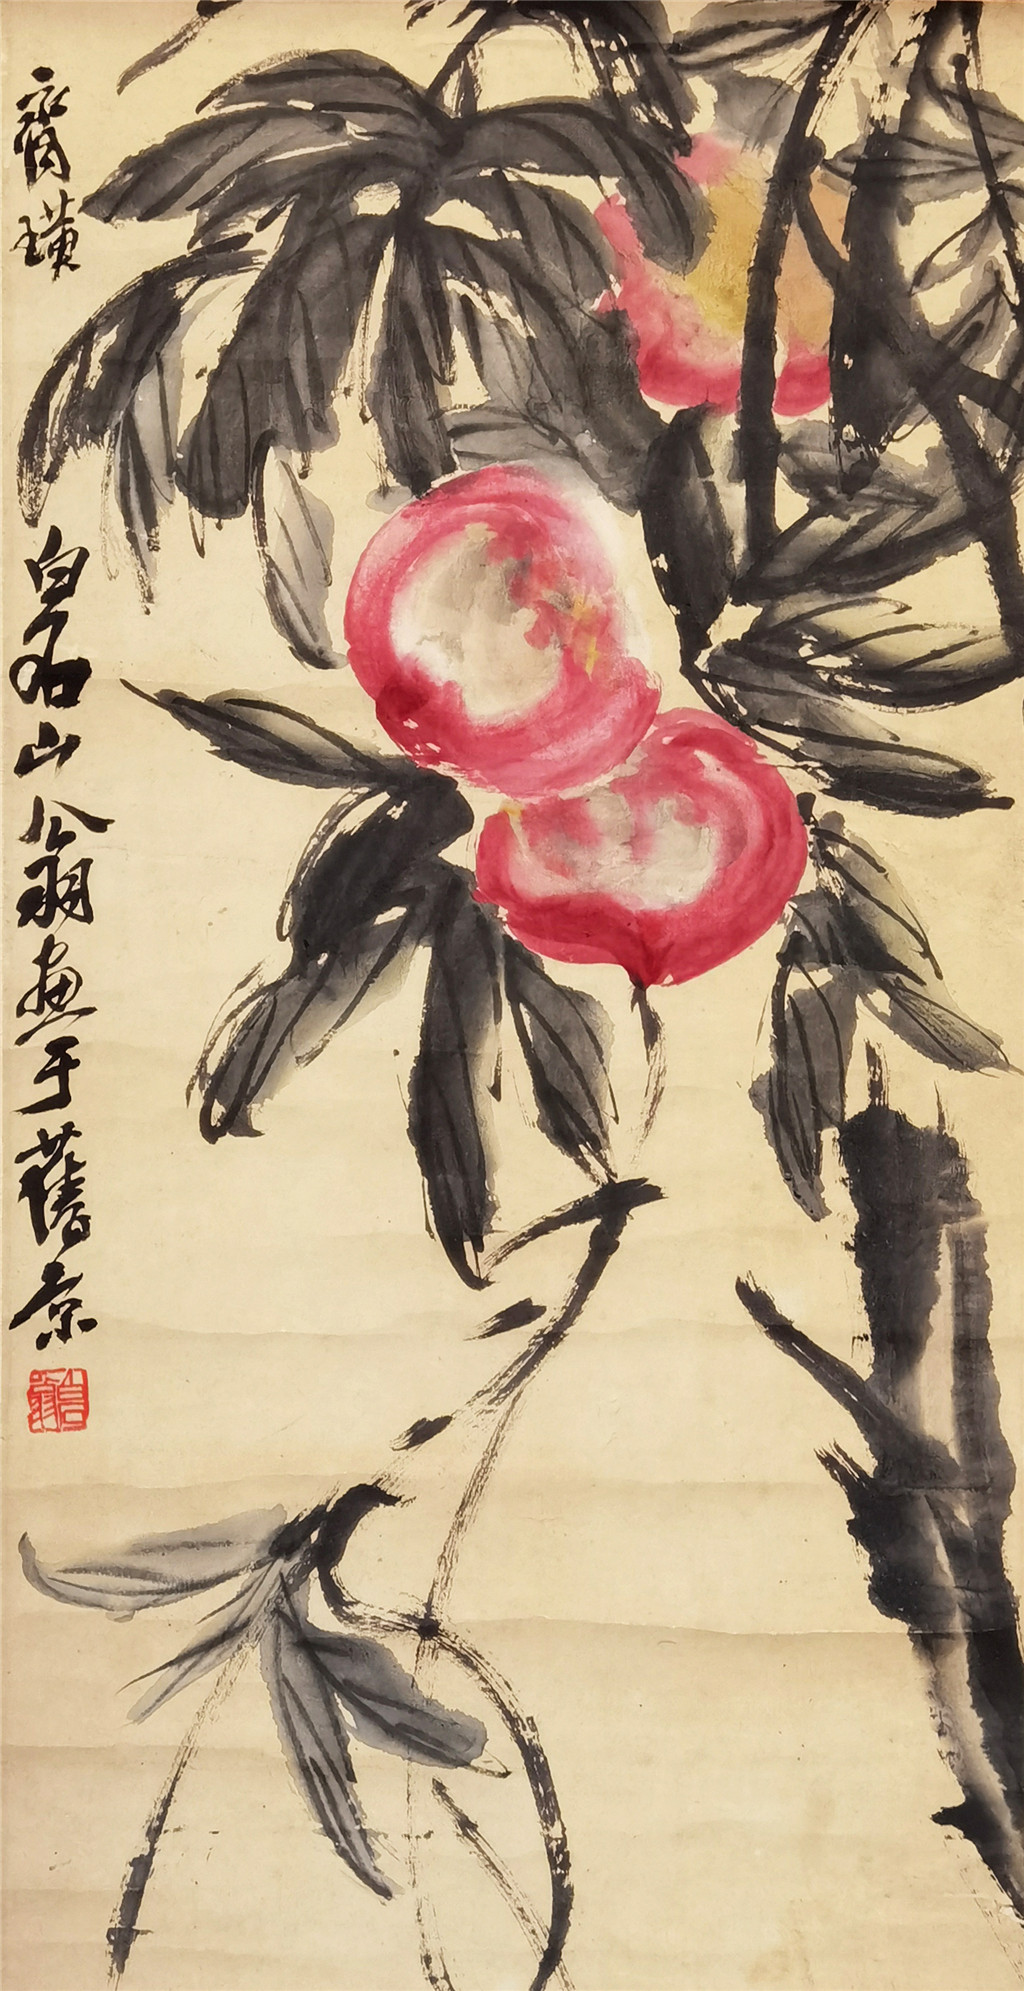 齊璜
白石山翁畫于舊京
白石翁